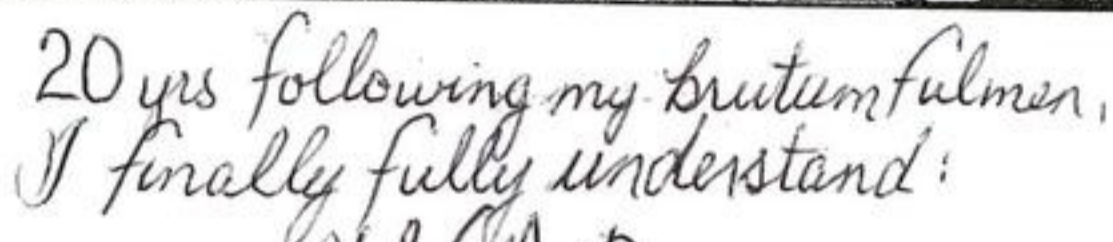 20 yrs following my brutum fulmen,
I finally fully understand: